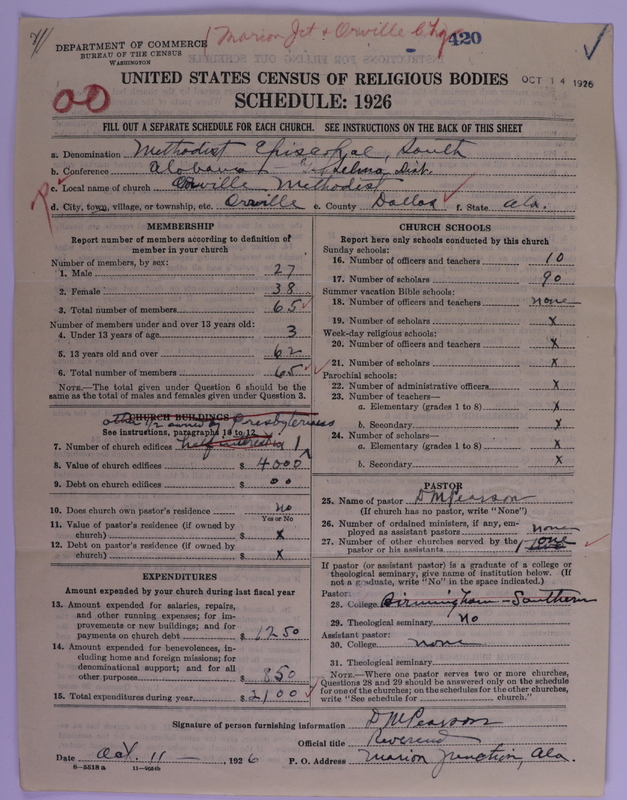 Marion Jct & Orville Chg
420
DEPARTMENT OF COMMERCE
BUREAU OF THE CENSUS
WASHINGTON
UNITED STATES CENSUS OF RELIGIOUS BODIES
OCT 14 1926
SCHEDULE: 1926
00
FILL OUT A SEPARATE SCHEDULE FOR EACH CHURCH. SEE INSTRUCTIONS ON THE BACK OF THIS SHEET
a. Denomination Methodist Episcopal, South
b. Conference Alabama Selma Dist.
c. Local name of church Orville Methodist
d. City, town, village, or township, etc. Orville e. County Dallas f. State Ala.
MEMBERSHIP
Report number of members according to definition of
member in your church
Number of members, by sex:
1. Male 27
2. Female 38
3. Total number of members 65
Number of members under and over 13 years old:
4. Under 13 years of age 3
5. 13 years old and over 62
6. Total number of members 65
NOTE.—The total given under Question 6 should be the
same as the total of males and females given under Question 3.
CHURCH BUILDINGS
other 1/2 owned by Presbyterians
See instructions, paragraphs 10 to 12
7. Number of church edifices half interest in 1
8. Value of church edifices $ 4000
9. Debt on church edifices $ 00
10. Does church own pastor's residence no
Yes or No
11. Value of pastor's residence (if owned by
church) $ x
12. Debt on pastor's residence (if owned by
church) $ x
EXPENDITURES
Amount expended by your church during last fiscal year
13. Amount expended for salaries, repairs,
and other running expenses; for im-
provements or new buildings; and for
payments on church debt $ 1250
14. Amount expended for benevolences, in-
cluding home and foreign missions; for
denominational support; and for all
other purposes $ 850
15. Total expenditures during year $ 2100
CHURCH SCHOOLS
Report here only schools conducted by this church
Sunday schools:
16. Number of officers and teachers 10
17. Number of scholars 90
Summer vacation Bible schools:
18. Number of officers and teachers none
19. Number of scholars x
Week-day religious schools:
20. Number of officers and teachers x
21. Number of scholars x
Parochial schools:
22. Number of administrative officers x
23. Number of teachers—
a. Elementary (grades 1 to 8) x
b. Secondary x
24. Number of scholars—
a. Elementary (grades 1 to 8) x
b. Secondary x
PASTOR
25. Name of pastor D M Pearson
(If church has no pastor, write "None")
26. Number of ordained ministers, if any, em-
ployed as assistant pastors none
27. Number of other churches served by the
pastor or his assistants 1 one
If pastor (or assistant pastor) is a graduate of a college or
theological seminary, give name of institution below. (If
not a graduate, write "No" in the space indicated.)
Pastor:
28. College Birmingham-Southern
29. Theological seminary No
Assistant pastor:
30. College none
31. Theological seminary
NOTE.—Where one pastor serves two or more churches,
Questions 28 and 29 should be answered only on the schedule
for one of the churches; on the schedules for the other churches,
write "See schedule for church."
Signature of person furnishing information D M Pearson
Official title Reverend
Date Oct. 11 —, 1926 P. O. Address Marion Junction, Ala.
8—5518 a